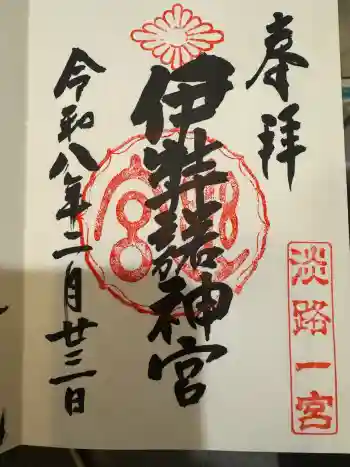 奉拝
伊弉諾神宮
令和八年二月廿三日
淡路一宮